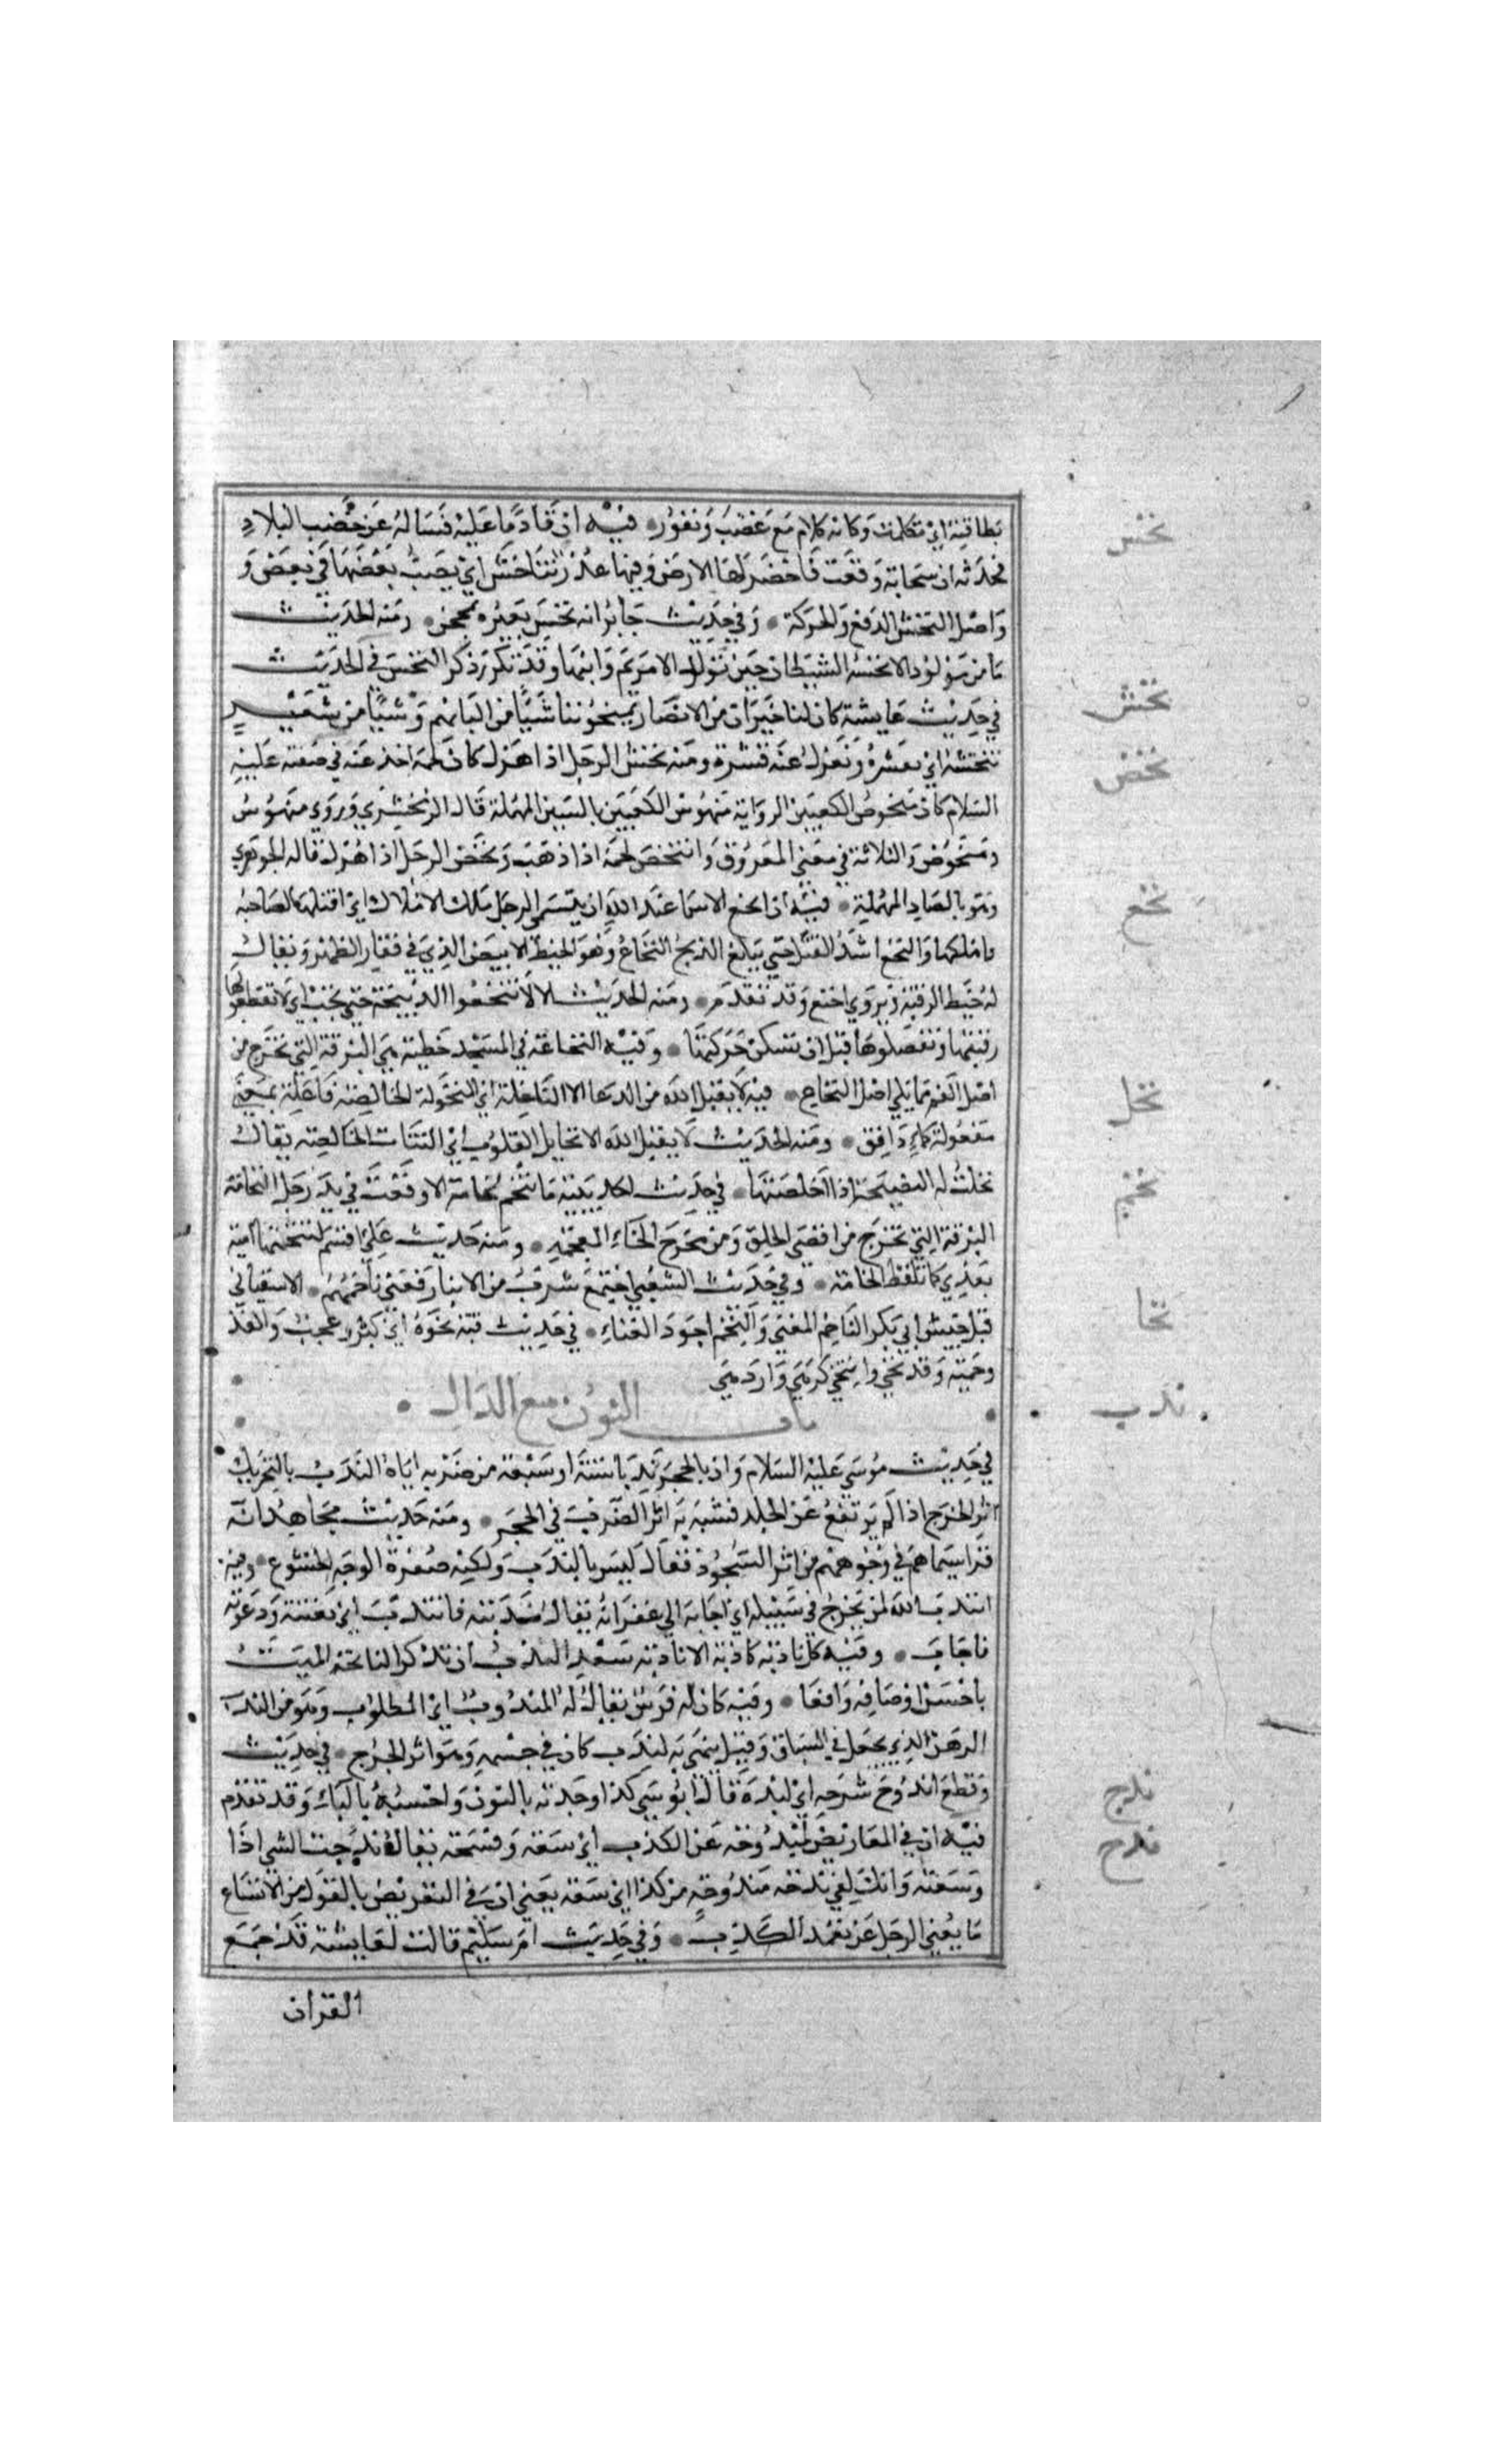 بطاقته اي تكلمت وكانه كلام مع غضب ونفور • فيه ان قادما عليه فساله عن خصب البلاد
فحدثه ان سحابة وقعت فاخضر لها الارض وفيها غدر تناخس اي يصب بعضها في بعض و
واصل النخس الدفع والحركة • وفي حديث جابر انه نخس بعيره بمحجن • ومنه الحديث
ما من مولود الا نخسه الشيطان حين تولد الا مريم وابنها وقد تكرر ذكر النخس في الحديث
في حديث عايشة كان لنا جيران من الانصار يمنحوننا شيا من البانهم وشيا من شعير
ننخشه اي نقشره ونعزل عنه قشره ومنه نخش الرجل اذا هزل كان لحمه اخذ عنه في صفته عليه
السلام كان منخوص الكعبين الرواية منهوس الكعبين بالسين المهملة قال الزمخشري وروي منهوش
ومنخوض والثلاثة في معنى المعروق وانتخص لحمه اذا ذهب ونخص الرجل اذا هزل قاله الجوهري
وهو بالصاد المهملة • فيه ان انخع الاسما عند الله ان يتسمى الرجل ملك الاملاك اي اقتلها لصاحبه
واهلكها والنخع اشد القتل حتى يبلغ الذبح النخاع وهو الخيط الابيض الذي في فقار الظهر ويقال
له خيط الرقبة ويروي اخنع وقد تقدم • ومنه الحديث الا لا تنخعوا الذبيحة حتى تجب اي لا تقطعوا
رقبتها وتفصلوها قبل ان تسكن حركتها • وفيه النخاعة في المسجد خطية هي البزقة التي تخرج من
اصل الفم مما يلي اصل النخاع • فيه لا يقبل الله من الدعا الا الناخلة اي المنخولة الخالصة فاعلة بمعنى
مفعولة كماء دافق • ومنه الحديث لا يقبل الله الا نخايل القلوب اي النيات الخالصة يقال
نخلت له النصيحة اذا اخلصتها • في حديث الحديبية ما تنخم نخامة الا وقعت في يد رجل النخامة
البزقة التي تخرج من اقصى الحلق ومن مخرج الخاء المعجمة • ومنه حديث علي اقسم لتنخمنها امية
بعدي كما تلفظ النخامة • وفي حديث الشعبي اجتمع شرب من الانبار فغنى ناخمهم • الا سقياني
قبل جيش ابي بكر الناخم المغني والنخم اجود الغناء • في حديث فيه نخوة اي كبر وعجب وانفة
وحمية وقد نخي وانتخي كزهي وازدهي
باب النون مع الدال
في حديث موسي عليه السلام وان بالحجر ندبا ستة او سبعة من ضربه اياه الندب بالتحريك
اثر الجرح اذا لم يرتفع عن الجلد فشبه به اثر الضرب في الحجر • ومنه حديث مجاهد انه
قرا سيماهم في وجوههم من اثر السجود فقال ليس بالندب ولكنه صفرة الوجه والخشوع • وفيه
انتدب الله لمن يخرج في سبيله اي اجابه الي غفرانه يقال ندبته فانتدب اي بعثته ودعوته
فاجاب • وفيه كل نادبة كاذبة الا نادبة سعد الندب ان تذكر النائحة الميت
باحسن اوصافه وافعاله • وفيه كان له فرس يقال له المندوب اي المطلوب وهو من الندب
الرهن الذي يجعل في السباق وقيل سمي به لندب كان في جسمه وهو اثر الجرح • في حديث
وقطع اندوج سرجه اي لبده قال ابو موسي كذا وجدته بالنون واحسبه بالباء وقد تقدم
فيه ان في المعاريض لمندوحة عن الكذب اي سعة وفسحة يقال ندحت الشي اذا
وسعته وانك لفي ندحة ومندوحة من كذا اي سعة يعني ان في التعريض بالقول من الاتساع
ما يغني الرجل عن تعمد الكذب • وفي حديث ام سلمة قالت لعايشة قد جمع
القران
نخس
نخش
نخص
نخع
نخل
نخم
نخا
ندب
ندج
ندح